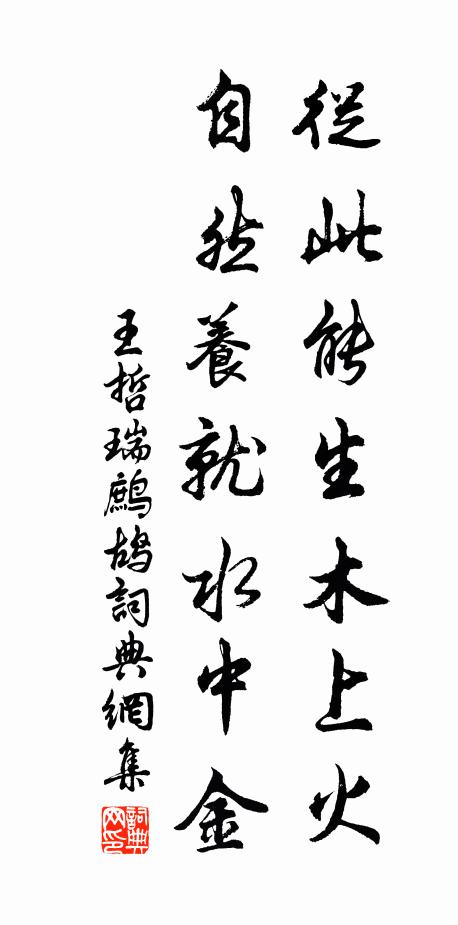 從此能生木上火
自然養就水中金
王哲瑞鷓鴣詞典網集
詞典網印